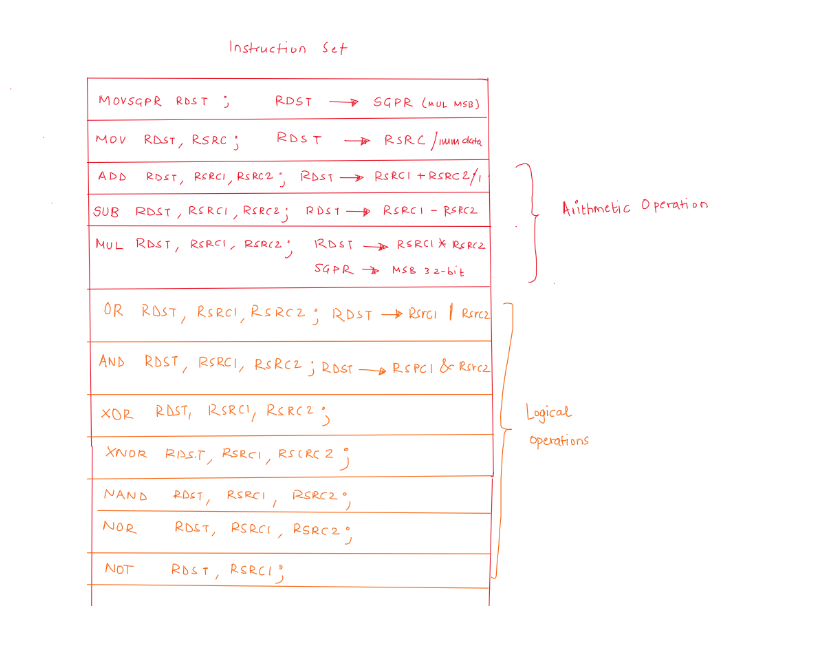 Instruction Set
MOVSGPR RDST ; RDST → SGPR (MUL MSB)
MOV RDST, RSRC ; RDST → RSRC / imm data
ADD RDST, RSRC1, RSRC2 ; RDST → RSRC1 + RSRC2/i
SUB RDST, RSRC1, RSRC2; RDST → RSRC1 - RSRC2
MUL RDST, RSRC1, RSRC2; RDST → RSRC1 * RSRC2
SGPR → MSB 32-bit
Arithmetic Operation
OR RDST, RSRC1, RSRC2 ; RDST → Rsrc1 | Rsrc2
AND RDST, RSRC1, RSRC2 ; RDST → RSRC1 & Rsrc2
XOR RDST, RSRC1, RSRC2 ;
XNOR RDST, RSRC1, RSCRC2 ;
NAND RDST, RSRC1, RSRC2 ;
NOR RDST, RSRC1, RSRC2 ;
NOT RDST, RSRC1;
Logical
operations